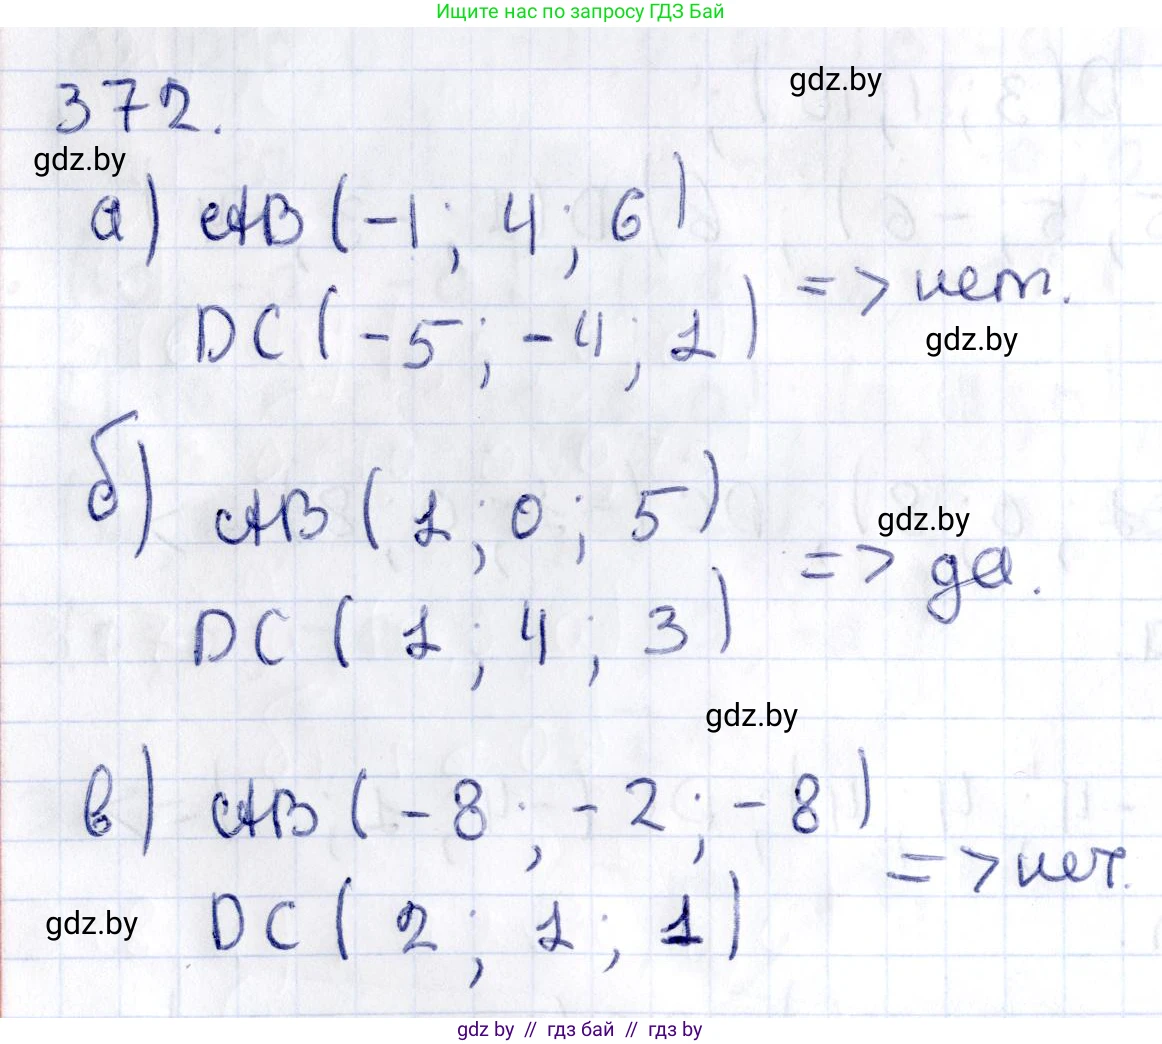 Ищите нас по запросу ГДЗ Бай
372.
gdz.by
gdz.by
а) AB (-1; 4; 6)
DC (-5; -4; 1) => нет.
gdz.by
б) AB (1; 0; 5)
gdz.by
DC (1; 4; 3) => да.
gdz.by
в) AB (-8; -2; -8)
DC (2; 1; 1) => нет.
gdz.by
gdz by // гдз бай // гдз by